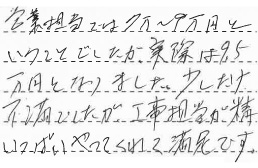 営業担当では7万〜9万円と
いうことでしたが、実際は9.5
万円となりました。少しだけ
不満でしたが工事担当が精
いっぱいやってくれて満足です。